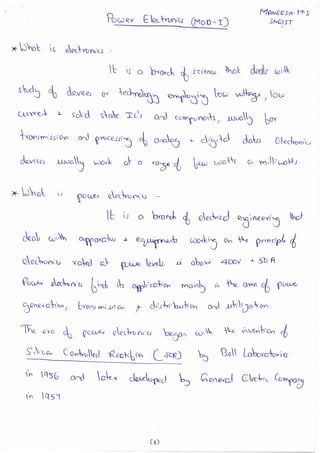 Power Electronics (MOD-I)
MANEESH·M·S
SNGIST
* What is electronics :-
It is a branch of science that deals with
study of devices or technology employing low voltage, low
current & solid state IC's and components, usually for
transmission and processing of analog & digital data. Electronic
devices usually work at a range of few watts or milliwatts.
* What is power electronics :-
It is a branch of electrical engineering that
deals with apparatus & equipments working on the principle of
electronics rated at power levels ie above 400V & 50A.
Power electronics finds its application mainly in the area of power
generation, transmission & distribution and utilization.
The era of power electronics began with the invention of
Silicon Controlled Rectifier (SCR) by Bell Laboratories
in 1956 and later developed by General Electric Company
in 1957.
(1)